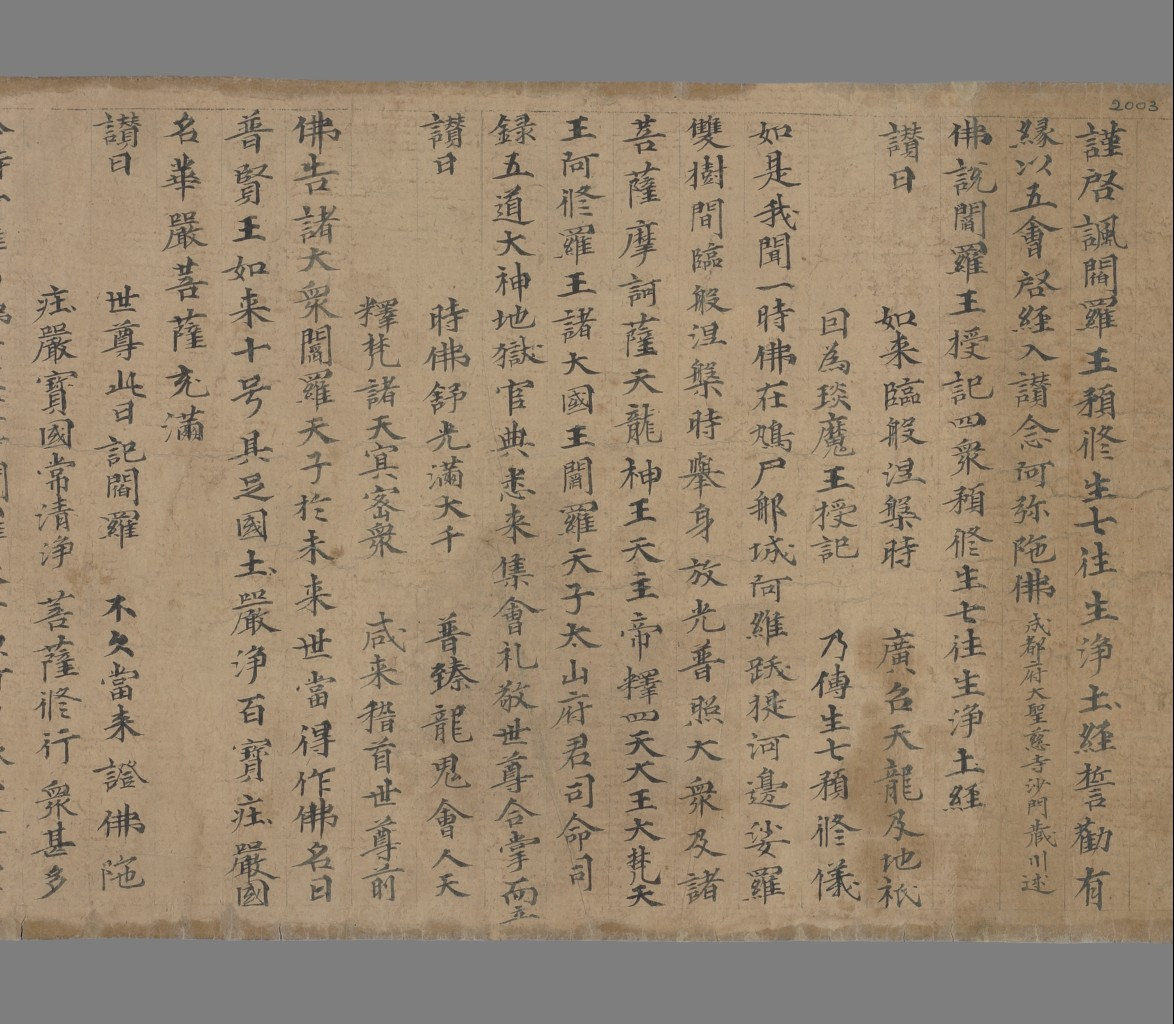 2003
謹啓諷閻羅王預修生七往生淨土經誓勸有
緣以五會啓經入讚念阿弥陁佛成都府大聖慈寺沙門藏川述
佛説閻羅王授記四衆預修生七往生淨土經
讚曰
如来臨般涅槃時 廣召天龍及地祇
因為琰魔王授記 乃傳生七預修儀
如是我聞一時佛在鳩尸那城阿維跋提河邊娑羅
雙樹間臨般涅槃時舉身放光普照大衆及諸
菩薩摩訶薩天龍神王天主帝釋四天大王大梵天
王阿修羅王諸大國王閻羅天子太山府君司命司
録五道大神地獄官典悉来集會礼敬世尊合掌而立
讚曰
時佛舒光滿大千 普臻龍鬼會人天
釋梵諸天冥密衆 咸来稽首世尊前
佛告諸大衆閻羅天子於未来世當得作佛名曰
普賢王如来十号具足國土嚴淨百寶莊嚴國
名華嚴菩薩充滿
讚曰
世尊此日記閻羅 不久當来證佛陁
莊嚴寶國常清淨 菩薩修行衆甚多